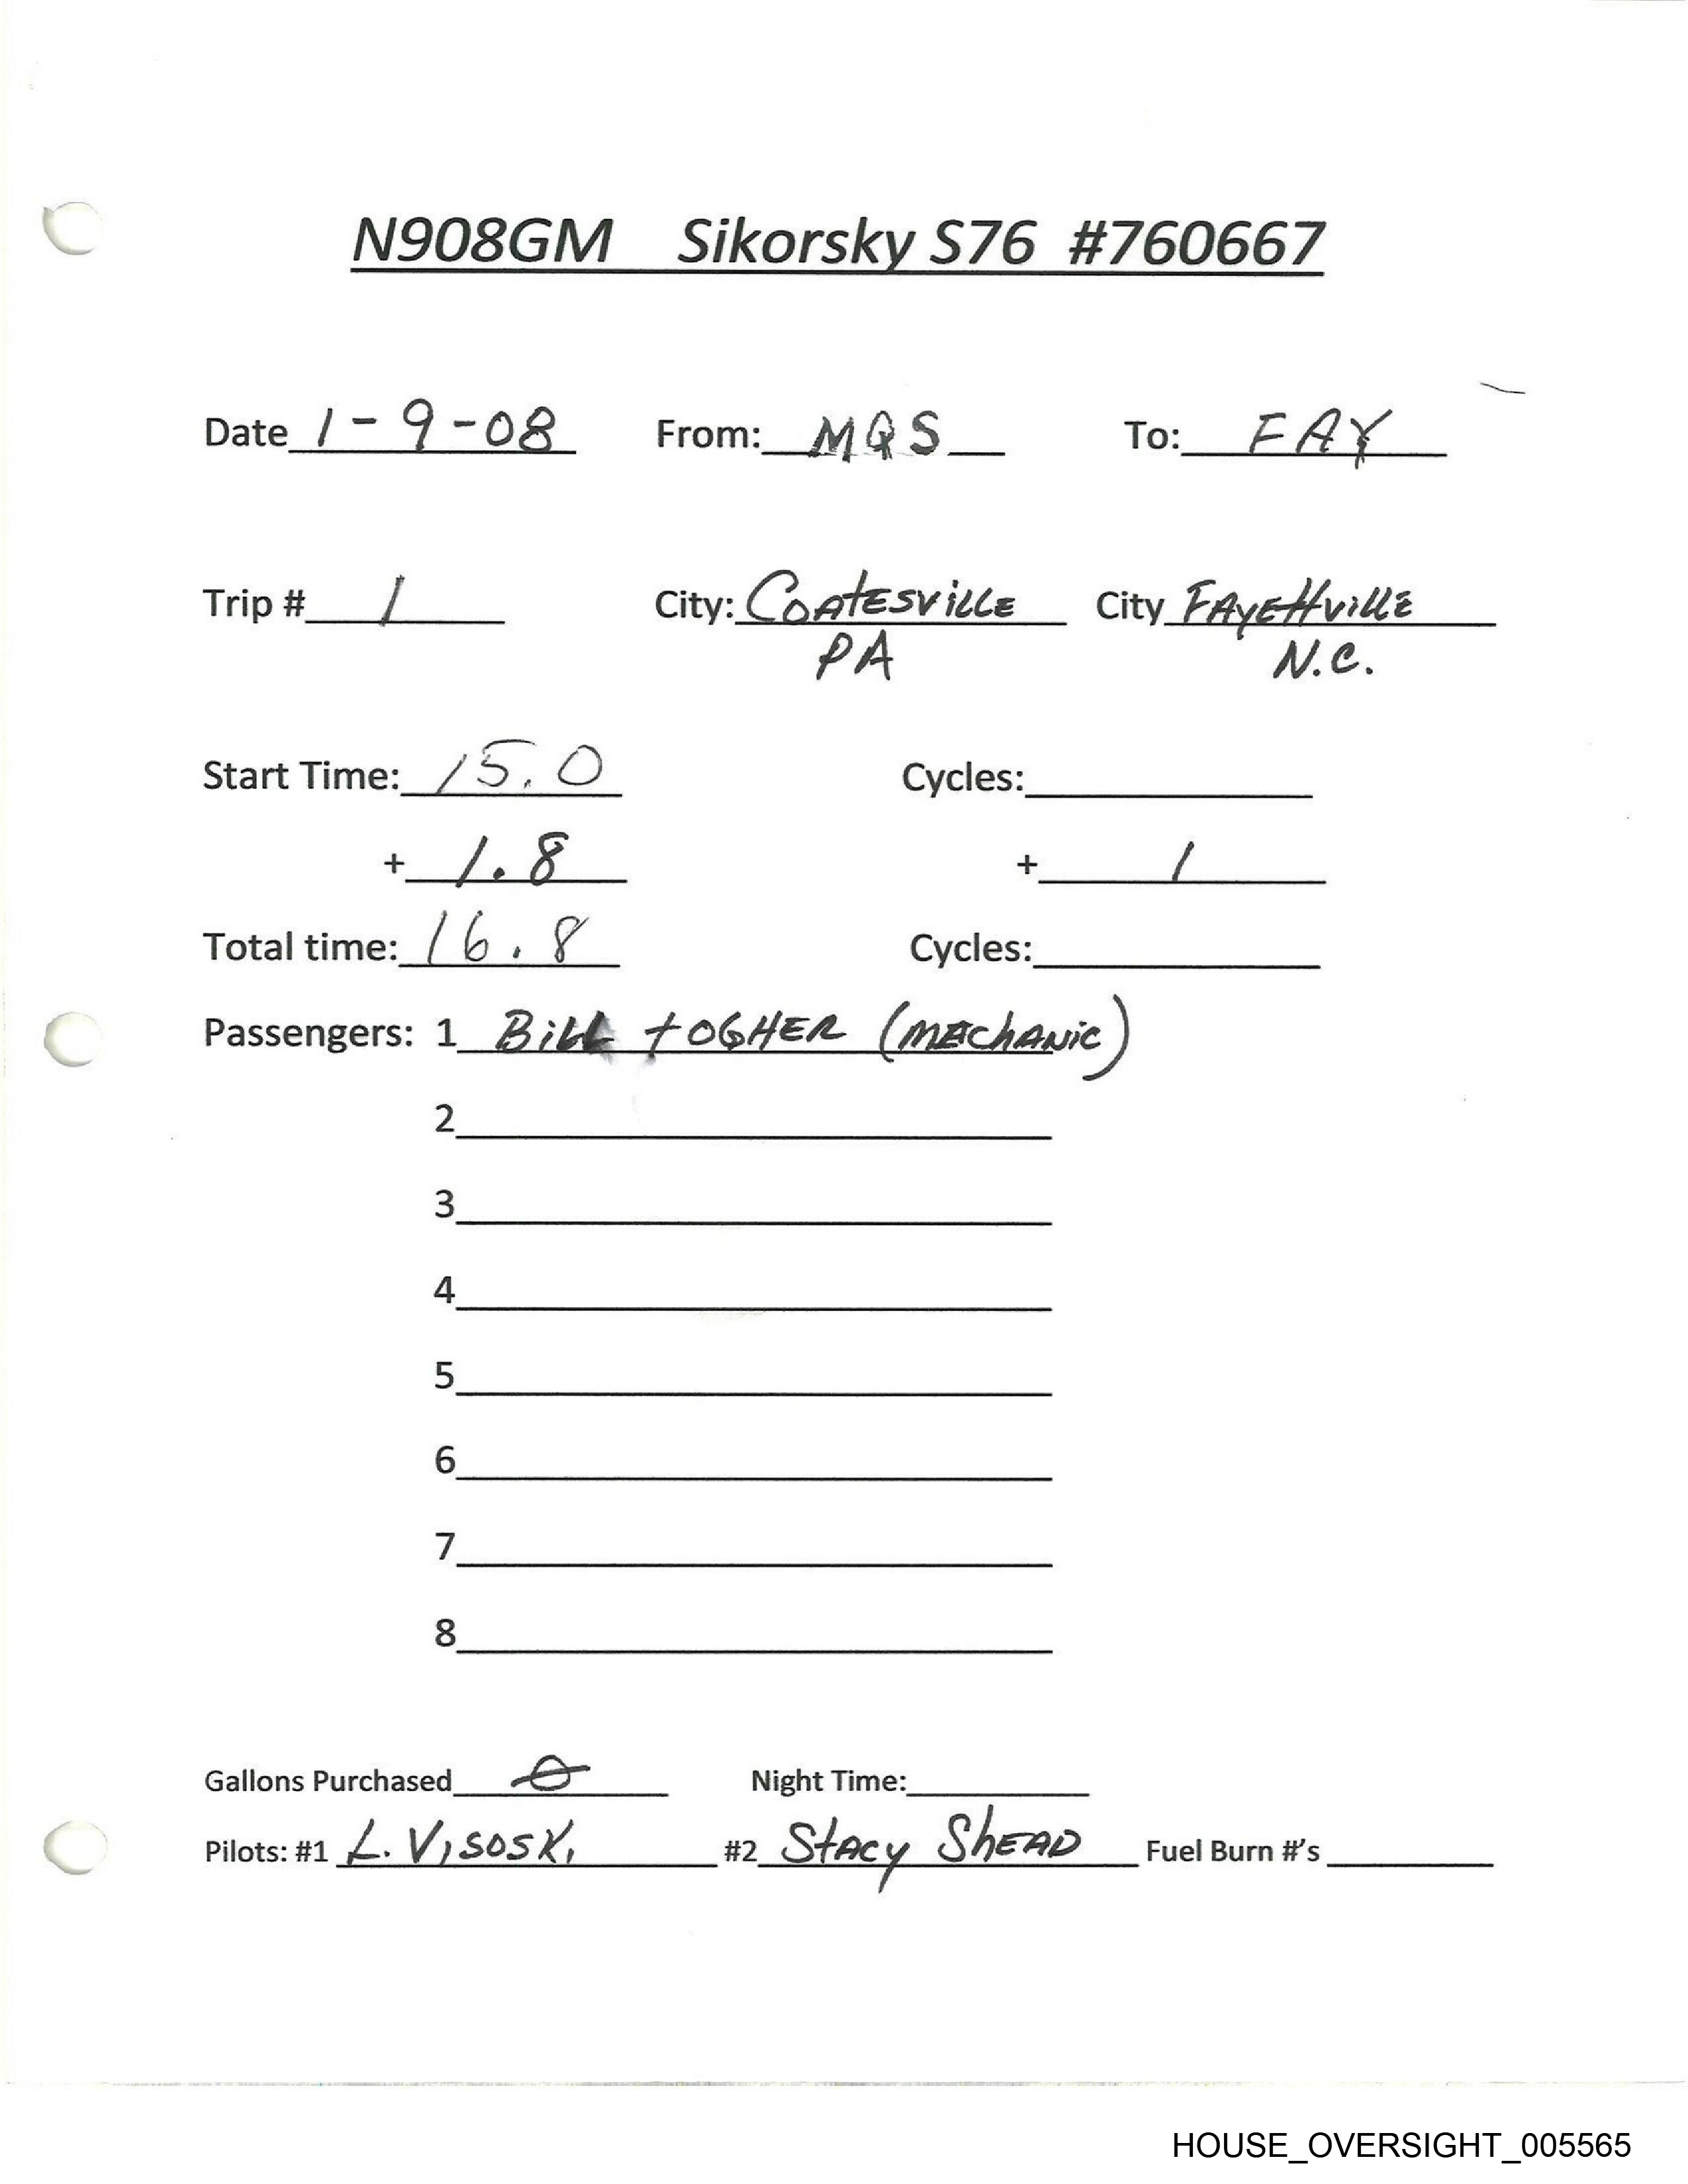 N908GM Sikorsky S76 #760667
Date 1-9-08 From: MQS To: FAY
Trip # 1 City: COATESVILLE City FAYETTVILLE
PA N.C.
Start Time: 15.0 Cycles:
+ 1.8 + 1
Total time: 16.8 Cycles:
Passengers: 1 BILL TOGHER (MECHANIC)
2
3
4
5
6
7
8
Gallons Purchased 0 Night Time:
Pilots: #1 L. VISOSKI #2 STACY SHEAD Fuel Burn #'s
HOUSE_OVERSIGHT_005565